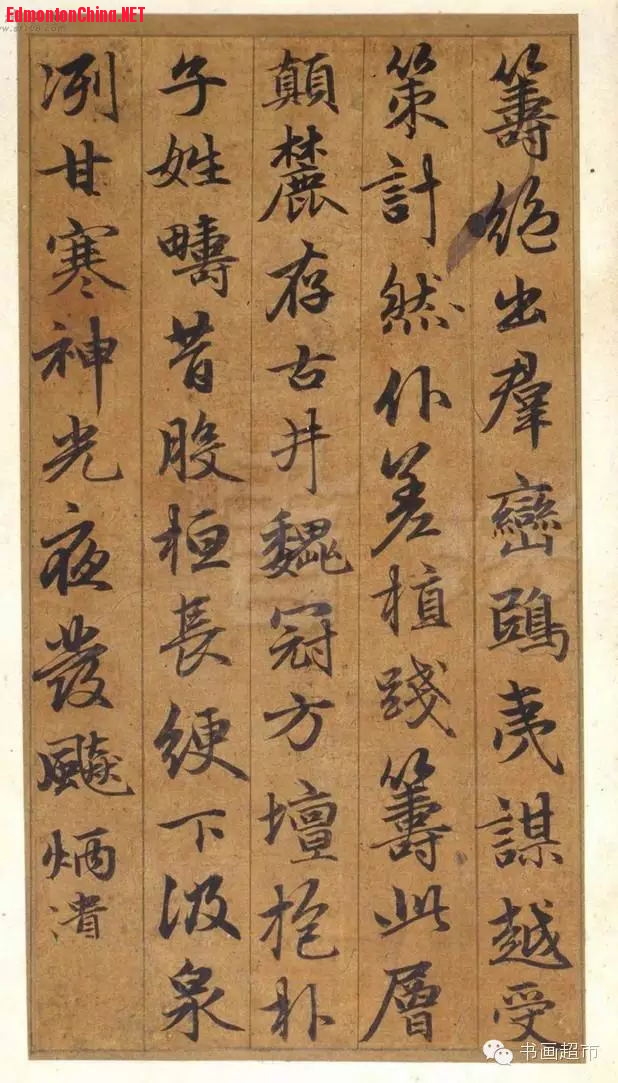 EdmontonChina.NET
籌絕出羣巒鴟夷謀越受
策計然仆差植踐籌此層
顛麓存古井魏冠方壇抱朴
子姓疇昔股桓長綆下汲泉
冽甘寒神光夜發飈炳潰
书画超市